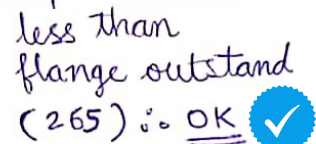 less than
flange outstand
(265) ∴ OK